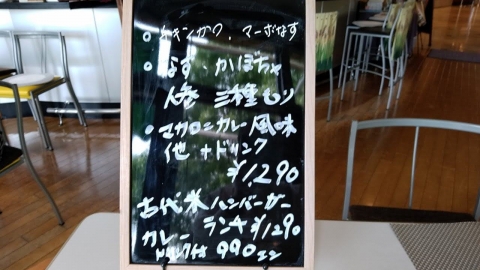 ・チキンカツ、マーボなす
・なす・かぼちゃ
人参 三種もり
・マカロニカレー風味
他 +ドリンク
¥1,290
古代米ハンバーガー
ランチ¥1290
カレー
ドリンク付 990エン